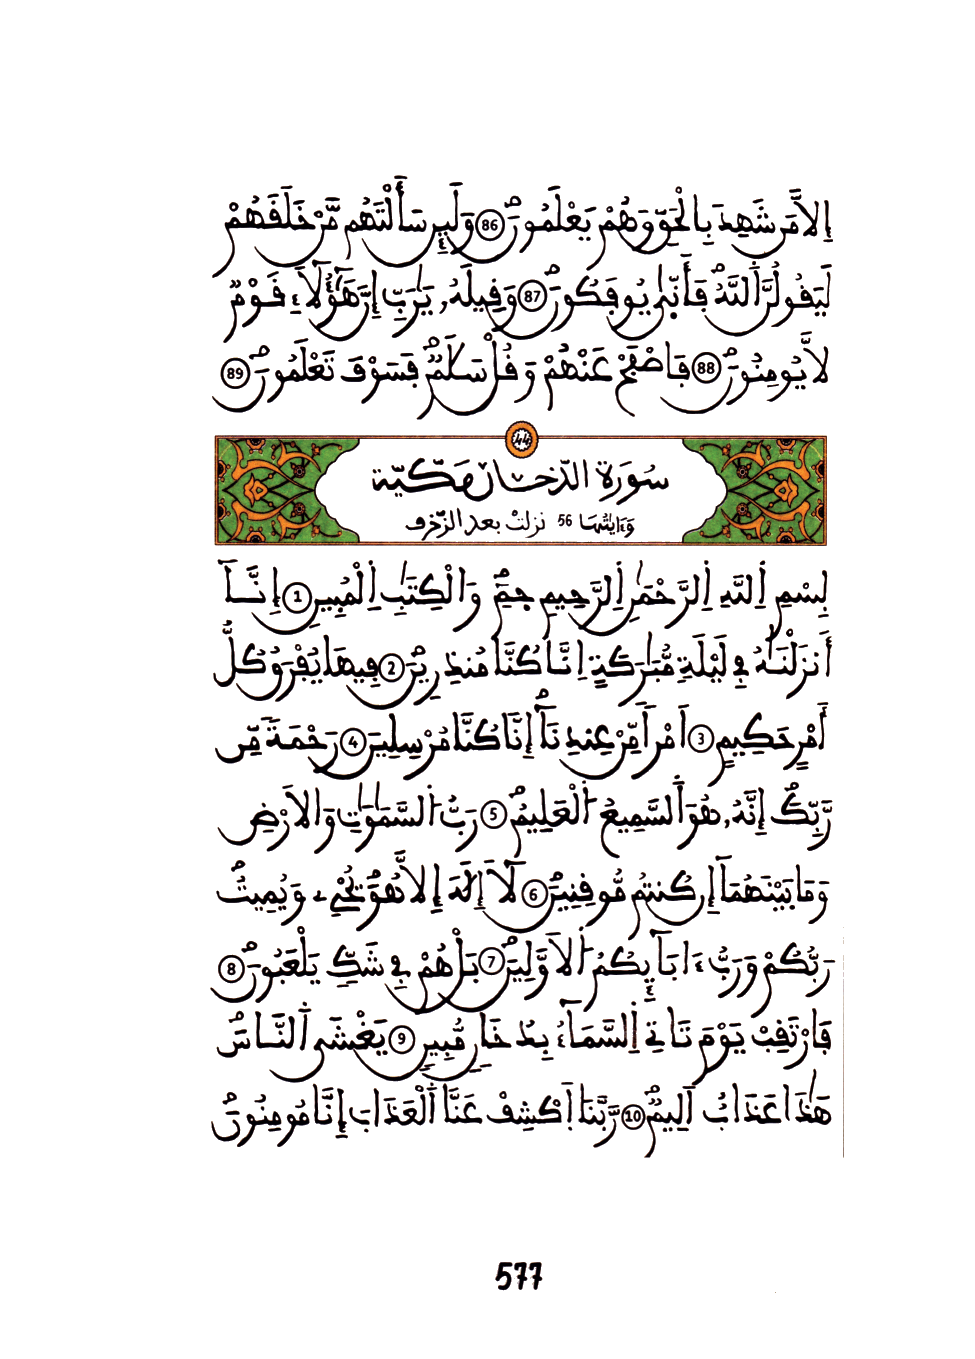 إِلَّا مَن شَهِدَ بِالْحَقِّ وَهُمْ يَعْلَمُونَ 86 وَلَئِن سَأَلْتَهُم مَّنْ خَلَقَهُمْ
لَيَقُولُنَّ اَللَّهُ فَأَنّ۪ىٰ يُوفَكُونَ 87 وَقِيلَهُۥ يَٰرَبِّ إِنَّ هَٰٓؤُلَآءِ قَوْمٌ
لَّا يُومِنُونَ 88 فَاصْفَحْ عَنْهُمْ وَقُلْ سَلَٰمٌ فَسَوْفَ تَعْلَمُونَ 89
44
سُورَة الدّخان مكّيّة
وَءَايَٰتُهَا 56 نزلتْ بعد الزّخرف
بِسْمِ اِللَّهِ اِلرَّحْمَٰنِ اِلرَّحِيمِ حَمِٓ وَالْكِتَٰبِ اِلْمُبِينِ 1 إِنَّآ
أَنزَلْنَٰهُ فِي لَيْلَةٍ مُّبَٰرَكَةٍ اِنَّا كُنَّا مُنذِرِينَ 2 فِيهَا يُفْرَقُ كُلُّ
أَمْرٍ حَكِيمٍ 3 اَمْراً مِّنْ عِندِنَآ إِنَّا كُنَّا مُرْسِلِينَ 4 رَحْمَةً مِّن
رَّبِّكَ إِنَّهُۥ هُوَ اَلسَّمِيعُ اُلْعَلِيمُ 5 رَبُّ اُلسَّمَٰوَٰتِ وَالَارْضِ
وَمَا بَيْنَهُمَآ إِن كُنتُم مُّوقِنِينَ 6 لَآ إِلَٰهَ إِلَّا هُوَ يُحْيِۦ وَيُمِيتُ
رَبُّكُمْ وَرَبُّ ءَابَآئِكُمُ اُلَاوَّلِينَ 7 بَلْ هُمْ فِي شَكٍّ يَلْعَبُونَ 8
فَارْتَقِبْ يَوْمَ تَاتِي اِلسَّمَآءُ بِدُخَانٍ مُّبِينٍ 9 يَغْشَى اَلنَّاسَ
هَٰذَا عَذَابٌ اَلِيمٌ 10 رَّبَّنَا اَكْشِفْ عَنَّا اَلْعَذَابَ إِنَّا مُومِنُونَ
577